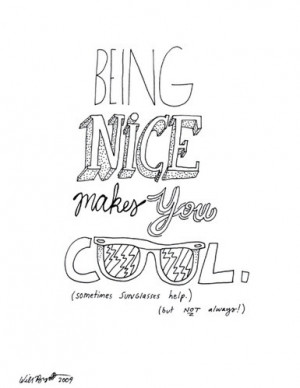 BEING
NiCE
makes You
COOL.
(sometimes sunglasses help.)
(but NOT always!)
2009